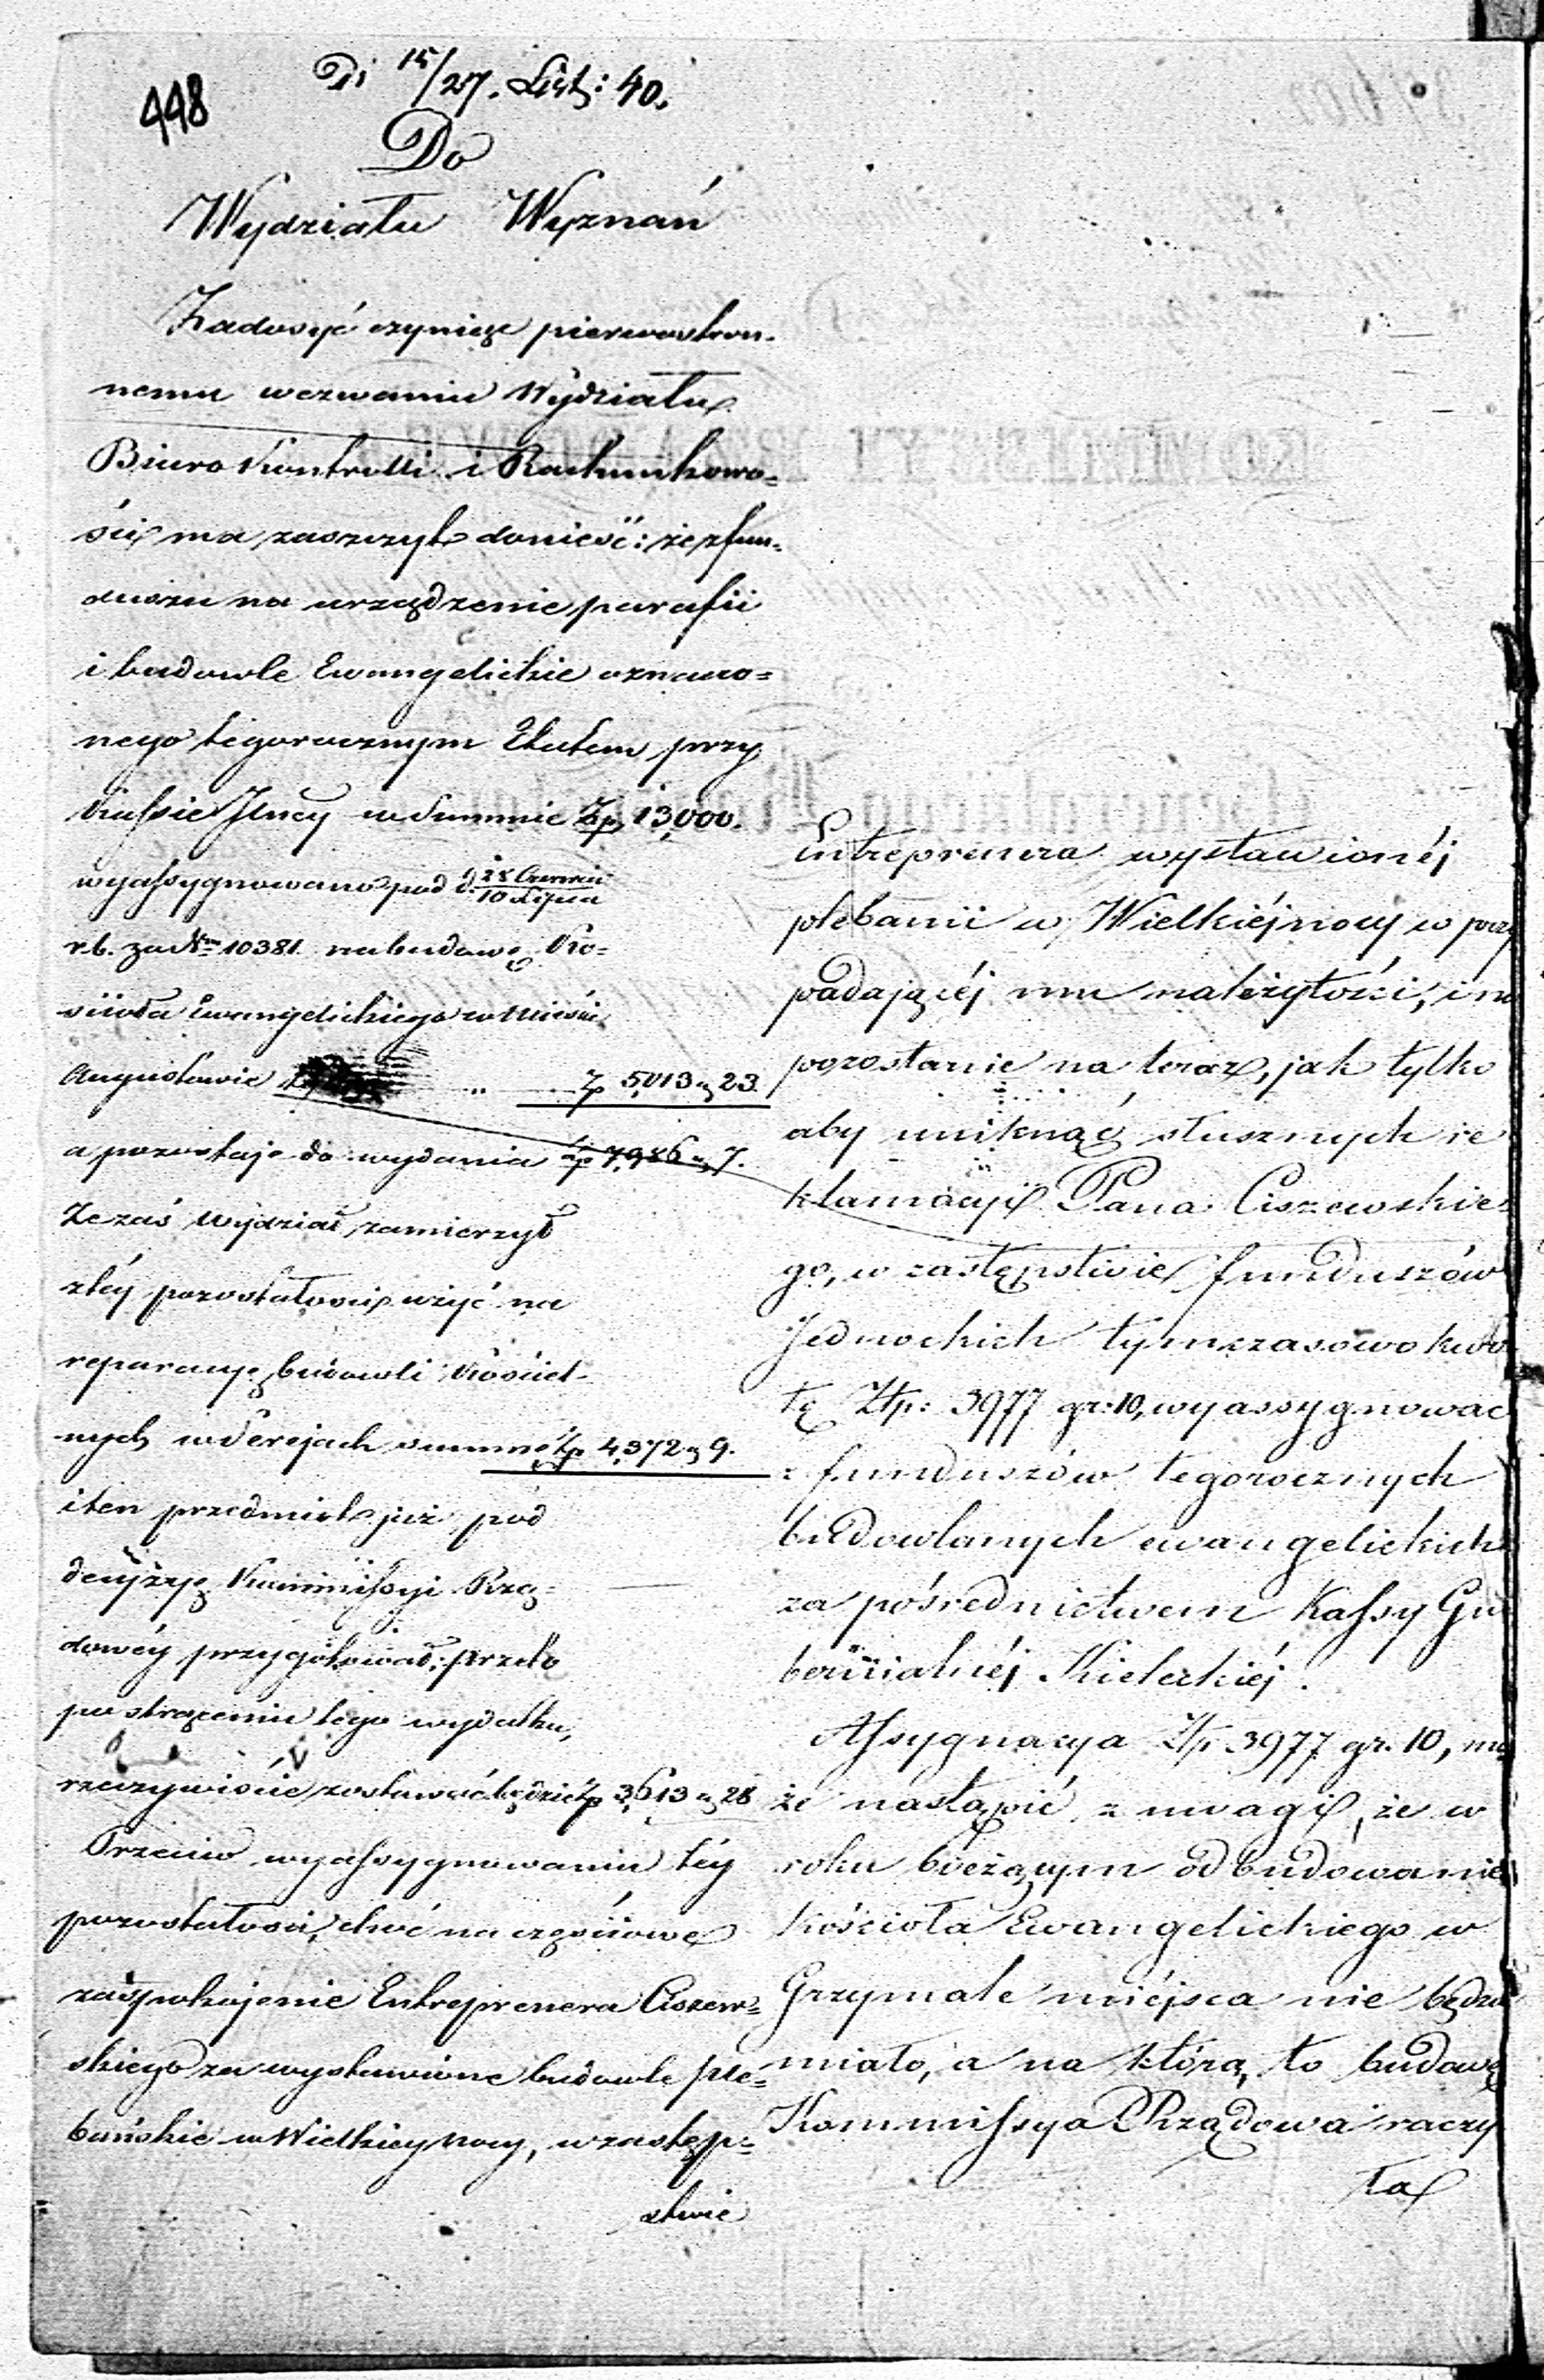 448
D. 15/27. List: 40.
Do
Wydziału Wyznań
Zadosyć czyniąc pierwostron-
nemu wezwaniu Wydziału
Biuro Kontrolli i Rachunkowo=
ści ma zaszczyt donieść: że z fun-
duszu na urządzenie parafii
i budowle Ewangelickie oznaczo=
nego tegorocznym Etatem przy
Kassie Jlney w Summie Zp 13,000.
wyassygnowano pod d. 28 Czerwca / 10 Lipca
r.b. za Nrm 10381. na budowę Ko=
ścioła Ewangelickiego w Mieście
Augustowie " Zp 5,013 g 23.
a pozostaje do wydania Zp 7,986 g 7.
Że zaś Wydział zamierzył
z téy pozostałości użyć na
reparacyę budowli Kościel-
nych w Serejach summę Zp 4,372 g 9.
i ten przedmiot już pod
decyzyę Kommissyi Rzą=
dowéy przygotował; przeto
po strąceniu tego wydatku,
rzeczywiście zostawać będzie Zp 3,613 g 28
Przeciw wyassygnowaniu téy
pozostałości, choć na częściowe
zaspokojenie Entreprenera Ciszew=
skiego za wystawione budowle ple=
bańskie w Wielkieynocy, w zastęp=
stwie
Entreprenera wystawionéj
plebanii w Wielkiéjnocy w przy
padającéj mu należytości, i na
pozostanie na teraz, jak tylko
aby uniknąć słusznych re
klamacyi Pana Ciszewskie=
go, w zastępstwie funduszów
Jednockich tymczasowo kwo
tę Złp: 3977 gr: 10, wyassygnować
z funduszów tegorocznych
budowlanych ewangelickich
za pośrednictwem Kassy Gu
bernialnéj Kieleckiéj.
Assygnacya Złp. 3977 gr. 10, mo
że nastąpić z uwagi, że w
roku bieżącym odbudowanie
Kościoła Ewangelickiego w
Grzymale miéjsca nie będzie
miało, a na którą to budowę
Kommissya Rządowa raczy
ła